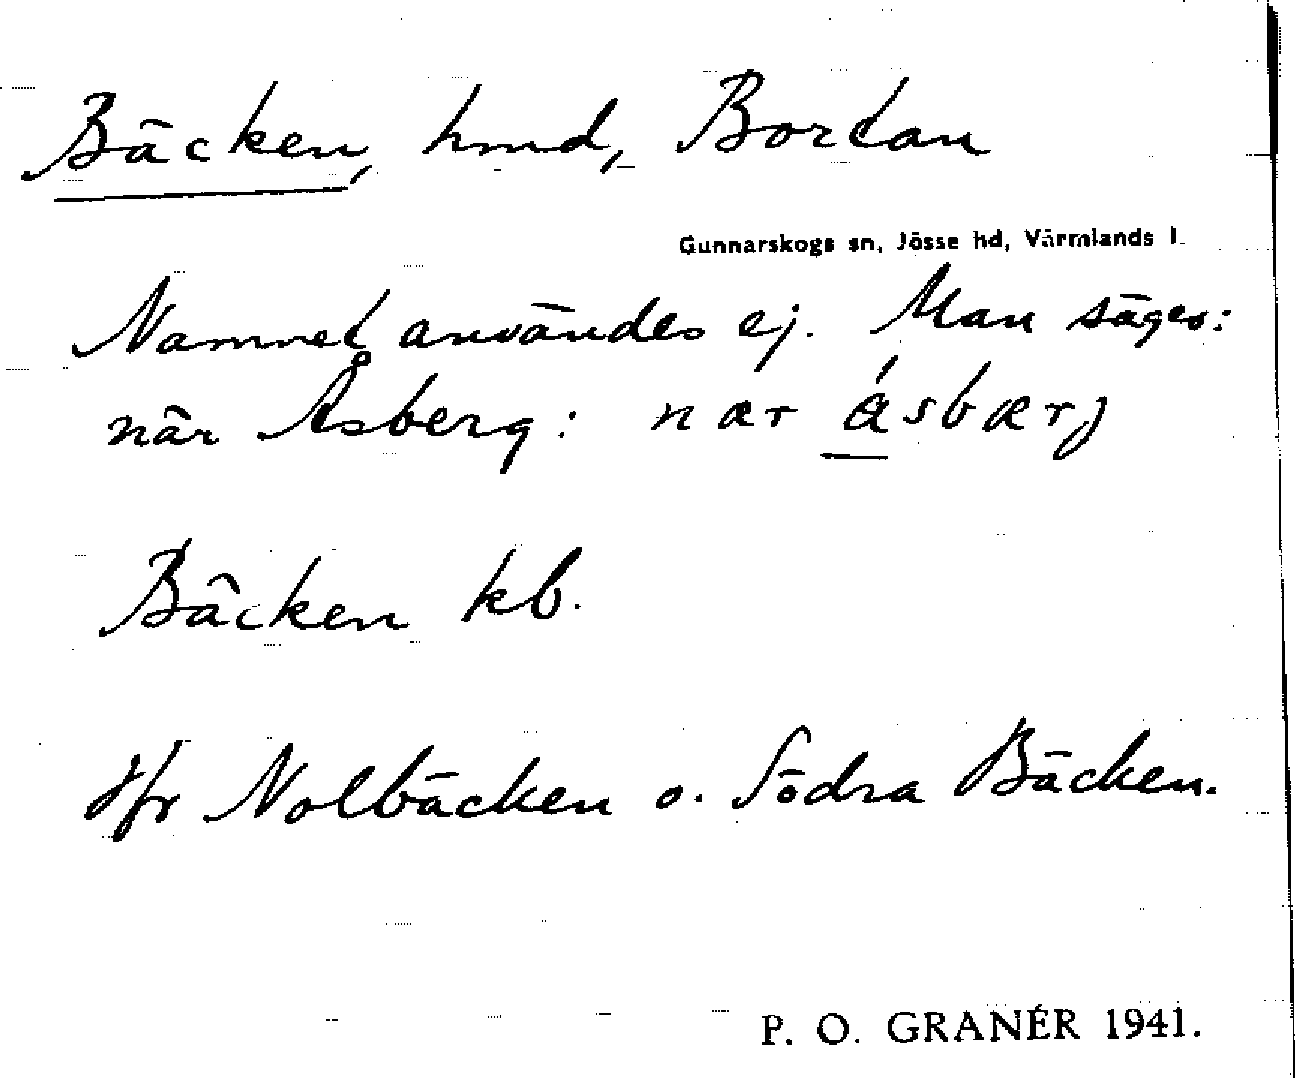 Bäcken, hmd, Bortan
Gunnarskogs sn, Jösse hd, Värmlands l.
Namnet användes ej. Man säger:
när Åsberg: nær ásbærj
Bäcken kb.
Jfr Nolbäcken o. Södra Bäcken.
P. O. GRANÉR 1941.